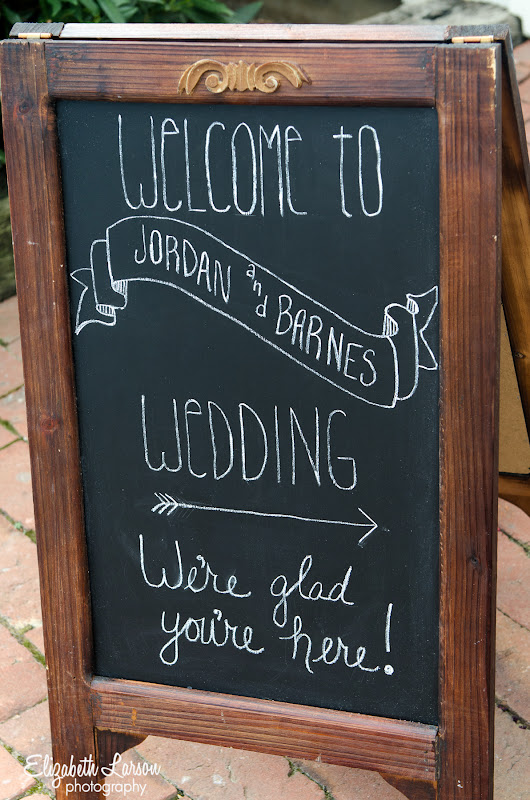 Welcome to
Jordan and Barnes
Wedding
We're glad
you're here!
Elizabeth Larson
photography